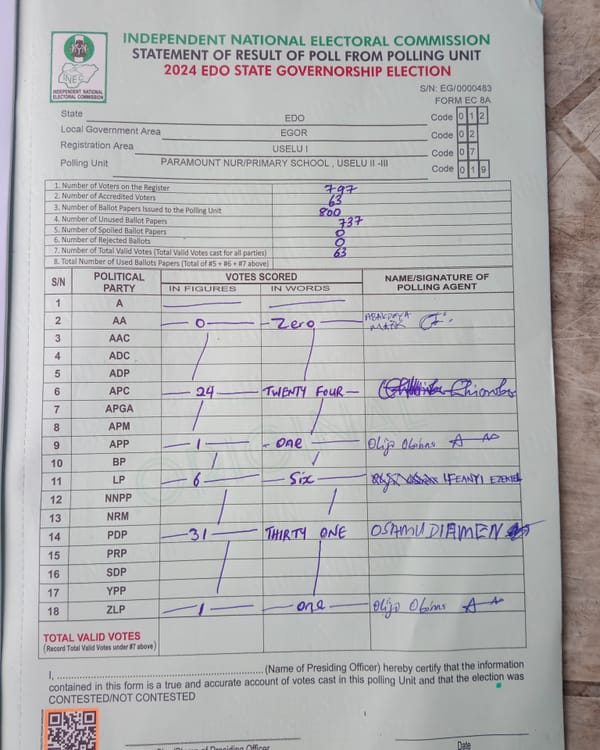 INDEPENDENT NATIONAL ELECTORAL COMMISSION
STATEMENT OF RESULT OF POLL FROM POLLING UNIT
2024 EDO STATE GOVERNORSHIP ELECTION
INEC
INDEPENDENT NATIONAL
ELECTORAL COMMISSION
S/N: EG/0000483
FORM EC 8A
State EDO Code 0 1 2
Local Government Area EGOR Code 0 2
Registration Area USELU I Code 0 7
Polling Unit PARAMOUNT NUR/PRIMARY SCHOOL , USELU II -III Code 0 1 9
1. Number of Voters on the Register 797
2. Number of Accredited Voters 63
3. Number of Ballot Papers Issued to the Polling Unit 800
4. Number of Unused Ballot Papers 737
5. Number of Spoiled Ballot Papers 0
6. Number of Rejected Ballots 0
7. Number of Total Valid Votes (Total Valid Votes cast for all parties) 63
8. Total Number of Used Ballots Papers (Total of #5 + #6 + #7 above)
S/N POLITICAL PARTY VOTES SCORED NAME/SIGNATURE OF POLLING AGENT
IN FIGURES IN WORDS
1 A
2 AA 0 Zero
3 AAC
4 ADC
5 ADP
6 APC 24 TWENTY FOUR
7 APGA
8 APM
9 APP 1 one
10 BP
11 LP 6 Six IFEANYI EZEKIEL
12 NNPP
13 NRM
14 PDP 31 THIRTY ONE OSAMUDIAMEN
15 PRP
16 SDP
17 YPP
18 ZLP 1 one
TOTAL VALID VOTES
(Record Total Valid Votes under #7 above)
I, (Name of Presiding Officer) hereby certify that the information
contained in this form is a true and accurate account of votes cast in this polling Unit and that the election was
CONTESTED/NOT CONTESTED
of Presiding Officer Date